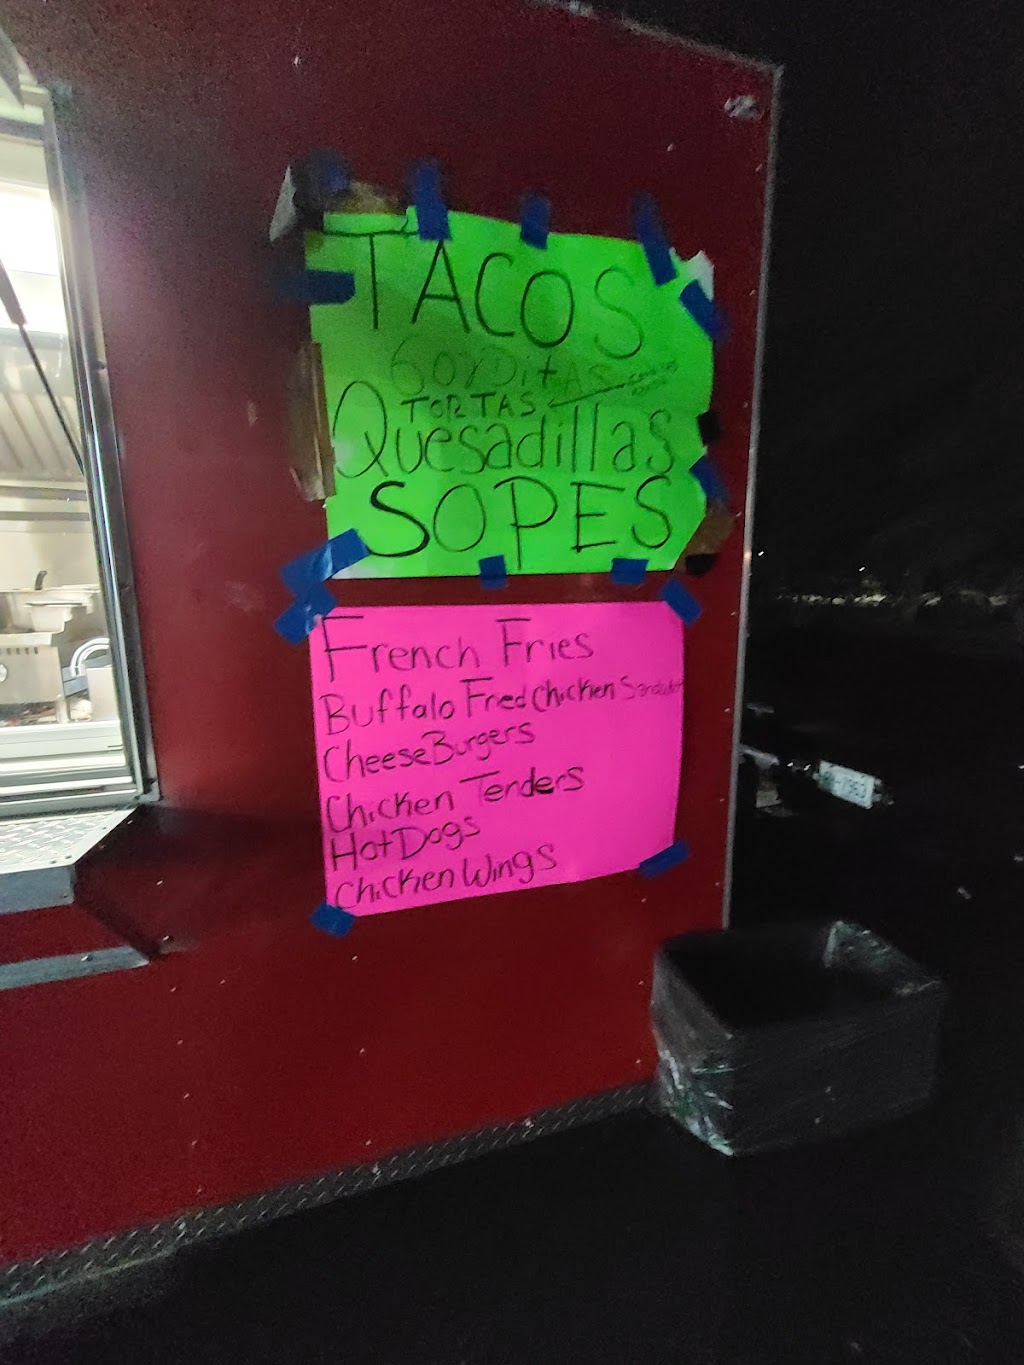 TACOS
GORDitAS
TORTAS
Quesadillas
SOPES
French Fries
Buffalo Fried Chicken Sandwich
CheeseBurgers
Chicken Tenders
Hot Dogs
Chicken Wings